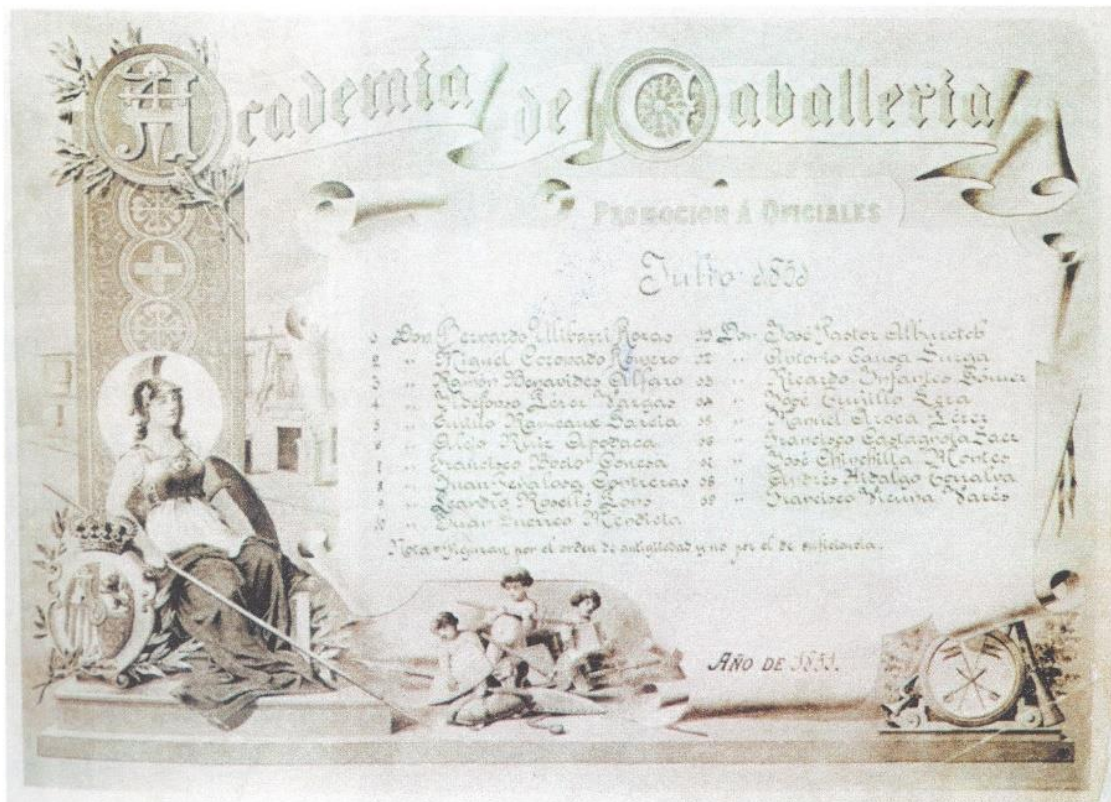 Academia de Caballería
PROMOCION Á OFICIALES
Julio 1851
1 Don Bernardo Ulibarri Roxas
2 " Miguel Coronado Romero
3 " Ramón Benavides Alfaro
4 " Ildefonso Pérez Vargas
5 " Emilio Rameaux García
6 " Alejo Ruiz Apodaca
7 " Francisco Conesa
8 " Juan Peñalosa Contreras
9 " Leandro Roselló
10 " Juan Guerrero Mendieta
11 Don José Pastor
12 " Antonio
13 " Ricardo Infantes Gómez
14 " José Trujillo
15 " Manuel Aroca Pérez
16 " Francisco Castagnola
17 " José Chinchilla Montes
18 " Andrés Hidalgo Torralva
19 " Francisco
Nota=Figuran por el orden de antigüedad y no por el de suficiencia.
AÑO DE 1851.